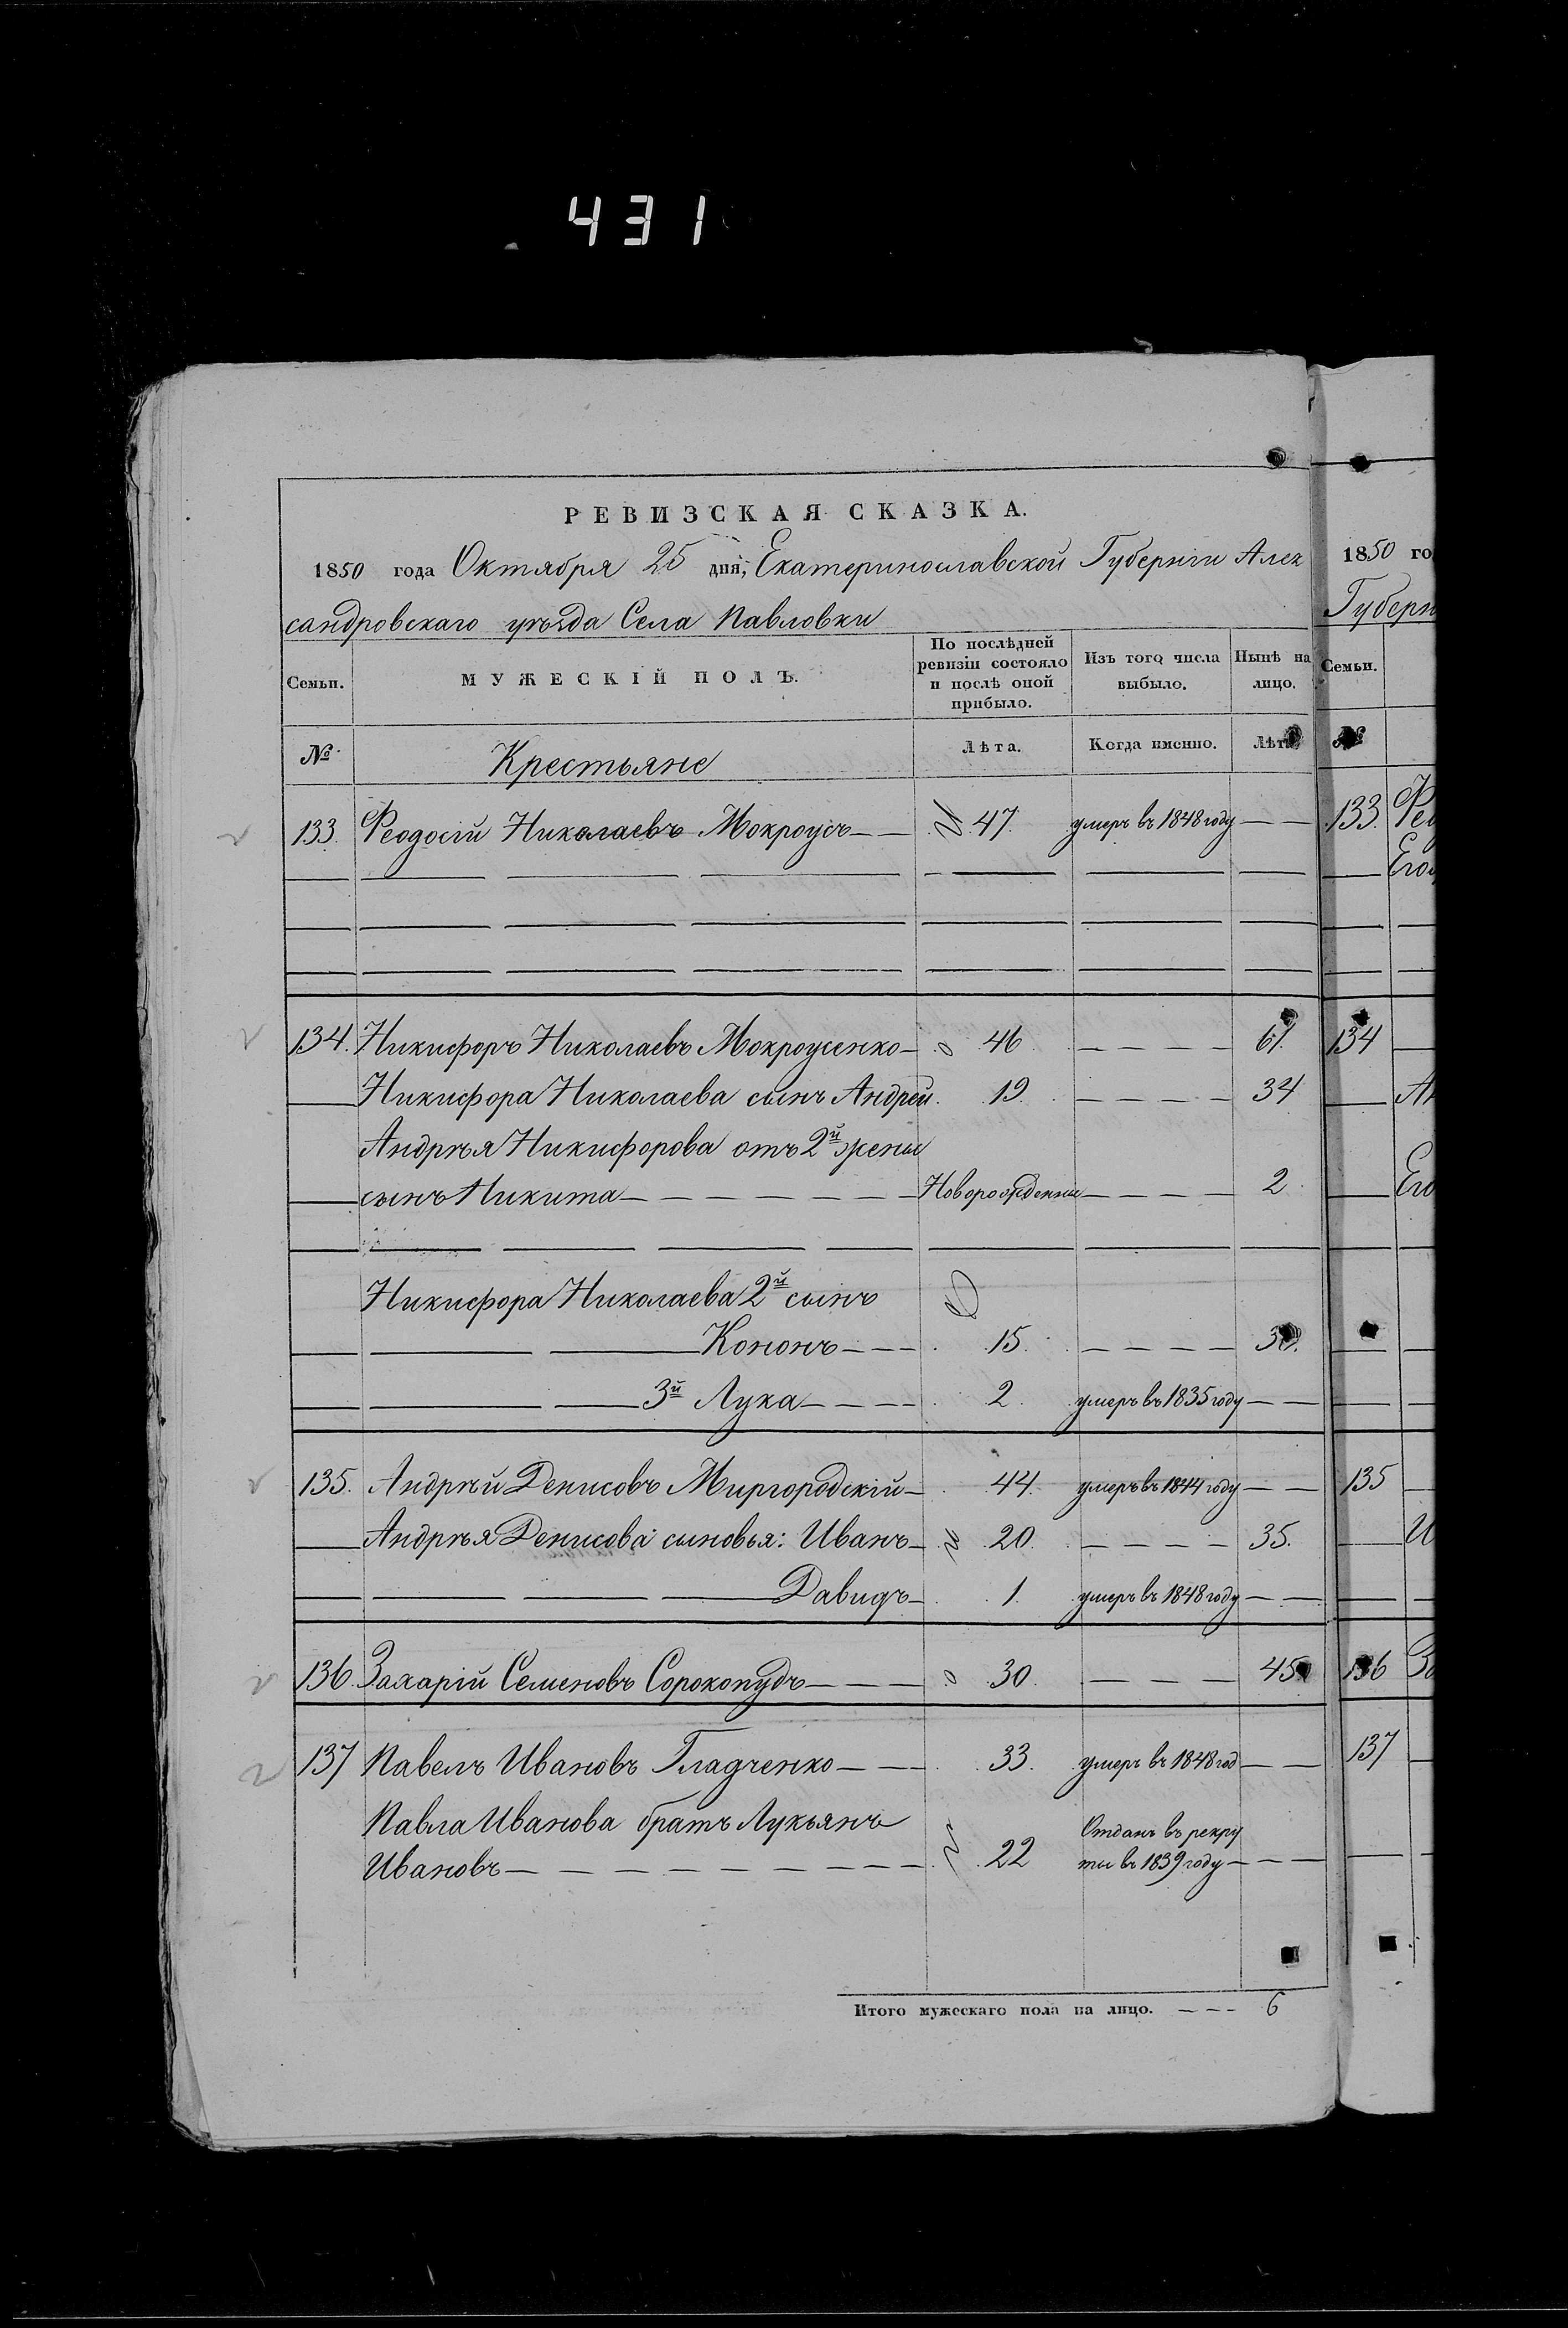 431
РЕВИЗСКАЯ СКАЗКА.
1850 года Октября 25 дня, Екатеринославской Губерніи Алек
сандровскаго уѣзда Села Павловки
Семьи. МУЖЕСКІЙ ПОЛЪ. По послѣдней ревизіи состояло и послѣ оной прибыло. Изъ того числа выбыло. Нынѣ на лицо.
№ Крестьяне Лѣта. Когда именно. Лѣта
133. Ѳеодосій Николаевъ Мокроусъ 47. умеръ въ 1848 году
134. Никифоръ Николаевъ Мокроусенко 46 61.
Никифора Николаева сынъ Андрей 19. 34
Андрѣя Никифорова отъ 2й жены
сынъ Никита Новорожденный 2
Никифора Николаева 2й сынъ
Кононъ 15. 30.
3й Лука 2. умеръ въ 1835 году
135. Андрѣй Денисовъ Миргородскій 44. умеръ въ 1844 году
Андрѣя Денисова сыновья: Иванъ 20. 35.
Давидъ 1. умеръ въ 1848 году
136. Захарій Семеновъ Сорокопудъ 30. 45
137 Павелъ Ивановъ Гладченко 33. умеръ въ 1848 год
Павла Иванова братъ Лукьянъ
Ивановъ 22 Отданъ въ рекру
ты въ 1839 году
Итого мужескаго пола на лицо. 6
1850 го
Губерн
Семьи.
№
133. Ѳео
Его
134
Ан
Его
135
И
136 За
137